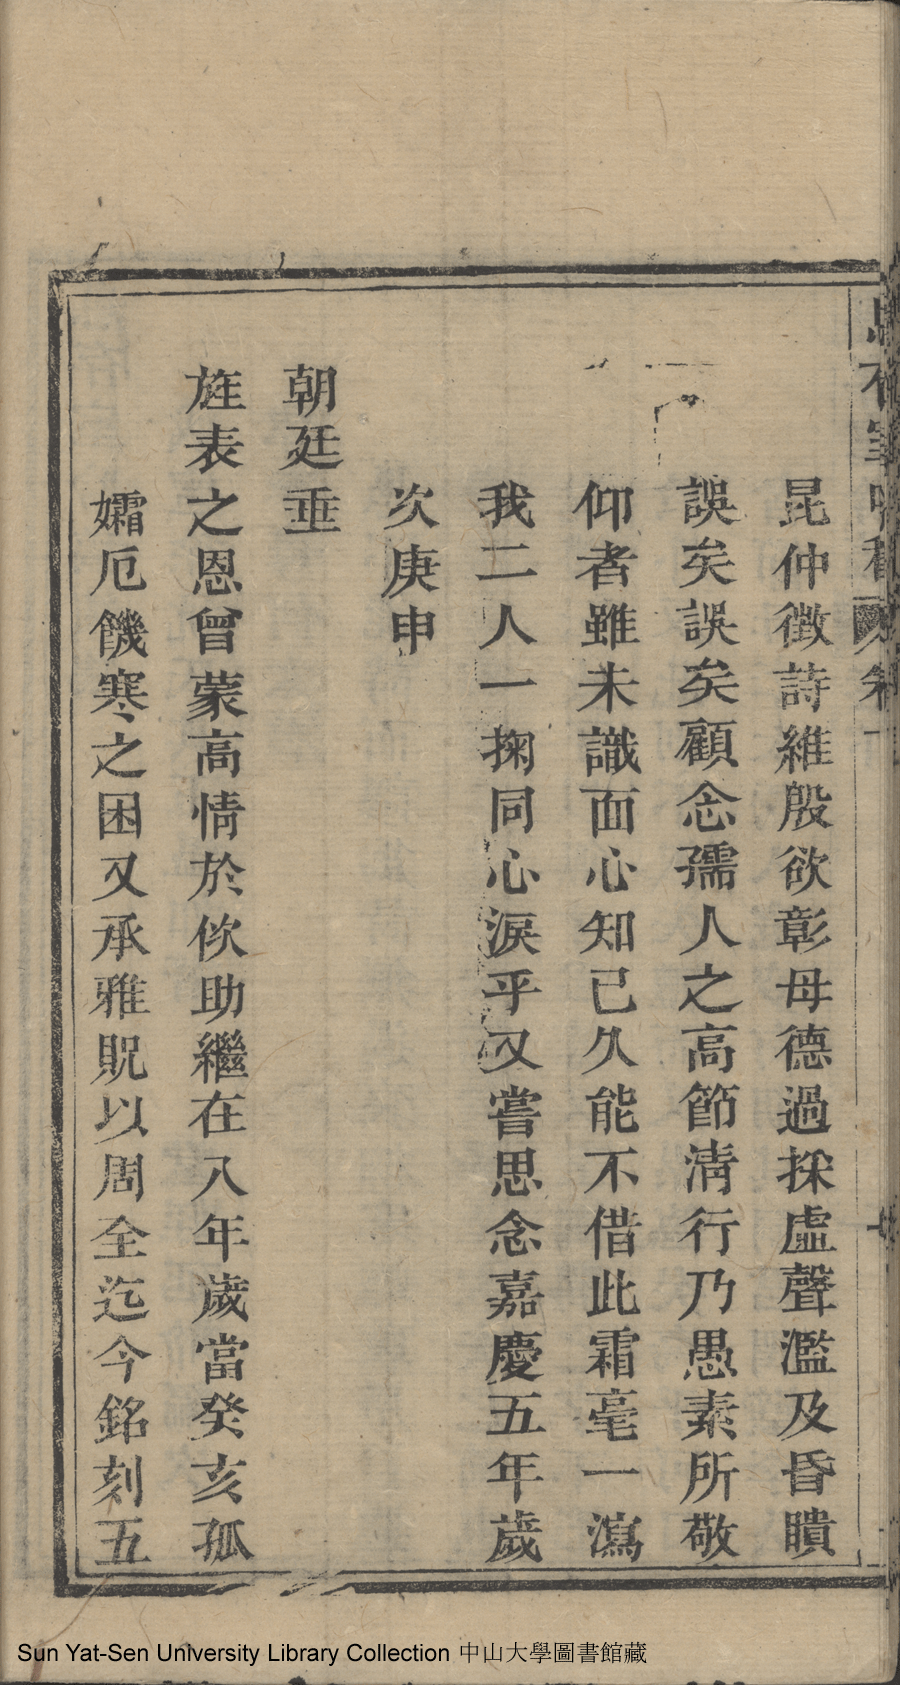 昆仲徵詩維殷欲彰母德過採虛聲濫及昏瞶
誤矣誤矣顧念孺人之高節清行乃愚素所敬
仰者雖未識面心知已久能不借此霜毫一瀉
我二人一掬同心淚乎又嘗思念嘉慶五年歲
次庚申
朝廷垂
旌表之恩曾蒙高情於佽助繼在八年歲當癸亥孤
孀厄饑寒之困又承雅貺以周全迄今銘刻五
Sun Yat-Sen University Library Collection 中山大學圖書館藏